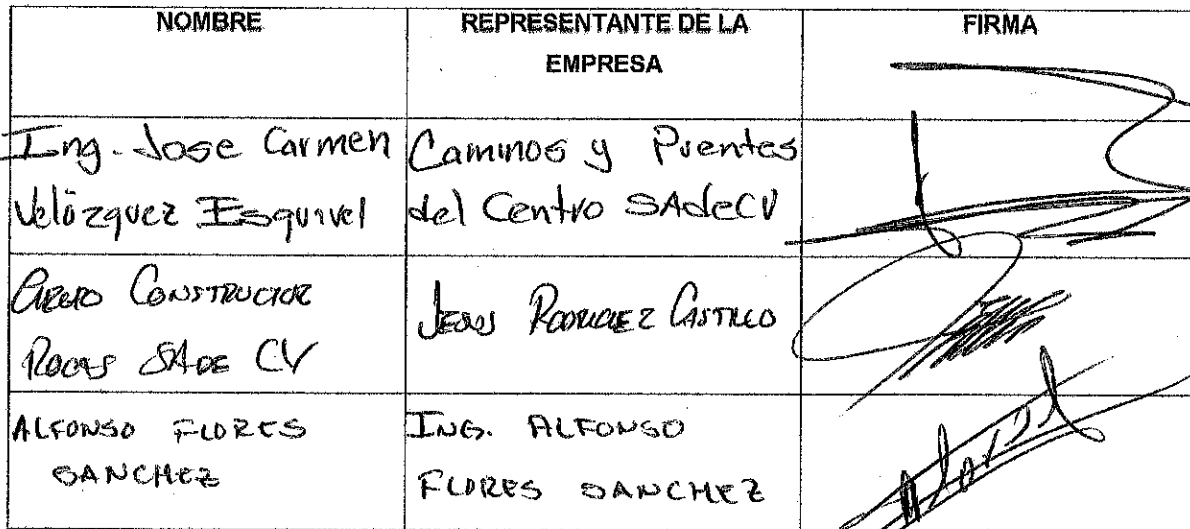 NOMBRE
REPRESENTANTE DE LA
EMPRESA
FIRMA
Ing. Jose Carmen
Velázquez Esquivel
Caminos y Puentes
del Centro SAdeCV
CONSTRUCTOR
SA DE CV
JESUS RODRIGUEZ CASTILLO
ALFONSO FLORES
SANCHEZ
ING. ALFONSO
FLORES SANCHEZ